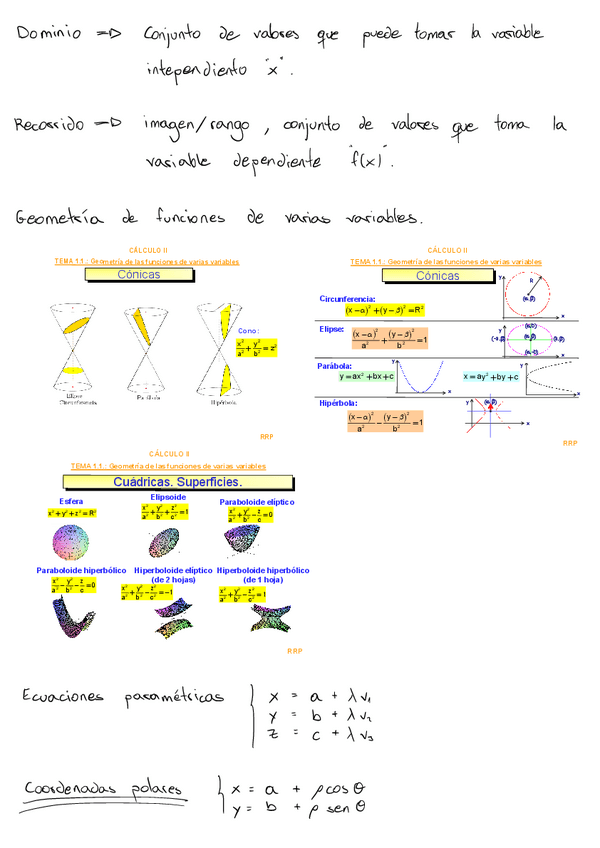 Dominio => Conjunto de valores que puede tomar la variable
intependiento "x".
Recorrido => imagen/rango, conjunto de valores que toma la
variable dependiente "f(x)".
Geometría de funciones de varias variables.
CÁLCULO II
TEMA 1.1.: Geometría de las funciones de varias variables
Cónicas
Cono:
x²/a² + y²/b² = z²
Elipse
Circunferencia
Parábola
Hipérbola
RRP
CÁLCULO II
TEMA 1.1.: Geometría de las funciones de varias variables
Cónicas
Circunferencia:
(x − α)² + (y − β)² = R²
R
(α,β)
y
x
Elipse:
(x − α)²/a² + (y − β)²/b² = 1
y
(α,β)
x
Parábola:
y = ax² + bx + c
y
x
x = ay² + by + c
y
x
Hipérbola:
(x − α)²/a² − (y − β)²/b² = 1
y
(α,β)
x
RRP
CÁLCULO II
TEMA 1.1.: Geometría de las funciones de varias variables
Cuádricas. Superficies.
Esfera
x² + y² + z² = R²
Elipsoide
x²/a² + y²/b² + z²/c² = 1
Paraboloide elíptico
x²/a² + y²/b² − z/c = 0
Paraboloide hiperbólico
x²/a² − y²/b² − z/c = 0
Hiperboloide elíptico
(de 2 hojas)
x²/a² + y²/b² − z²/c² = −1
Hiperboloide hiperbólico
(de 1 hoja)
x²/a² + y²/b² − z²/c² = 1
RRP
Ecuaciones paramétricas
x = a + λv₁
y = b + λv₂
z = c + λv₃
Coordenadas polares
x = a + ρ cos θ
y = b + ρ sen θ